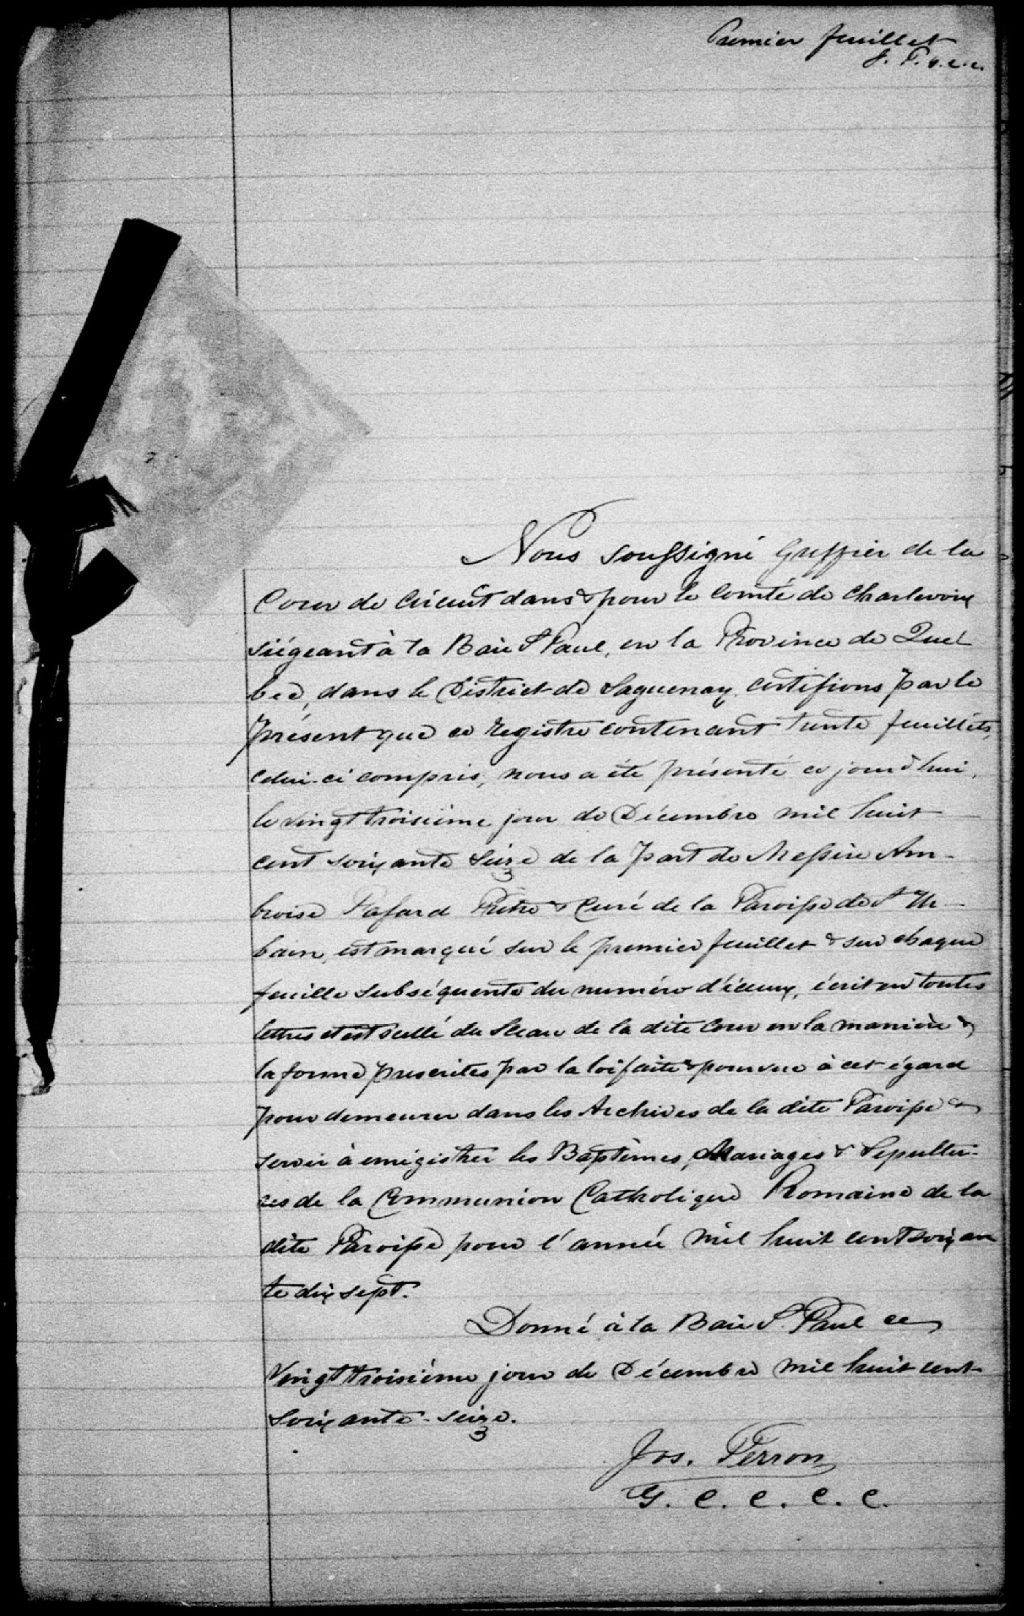 Premier feuillet
J. P. g. c. c.
Nous soussigné Greffier de la
Cour de Circuit dans & pour le Comté de Charlevoix
siégeant à la Baie St Paul, en la Province de Qué-
bec, dans le District de Saguenay, certifions par le
présent que ce registre contenant trente feuillets,
celui-ci compris, nous a été présenté ce jourd'hui,
le vingt troisième jour de Décembre mil huit
cent soixante seize de la part de Messire Am-
broise Fafard Ptre & Curé de la Paroisse de St Ur-
bain, est marqué sur le premier feuillet & sur chaque
feuille subséquente du numéro d'iceux, écrit en toutes
lettres et est scellé du Sceau de la dite Cour en la manière &
la forme prescrites par la loi faite & pourvue à cet égard
pour demeurer dans les Archives de la dite Paroisse &
servir à enrégistrer les Baptêmes, Mariages & Sépultu-
res de la Communion Catholique Romaine de la
dite Paroisse pour l'année mil huit cent soixan
te dix sept.
Donné à la Baie St Paul ce
Vingt troisième jour de Décembre mil huit cent
soixante-seize.
Jos. Perron
G. C. C. C. C.